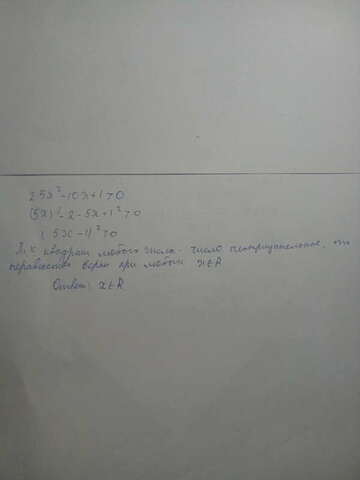 25x² - 10x + 1 > 0
(5x)² - 2 · 5x + 1² > 0
(5x - 1)² > 0
Т. к квадрат любого числа - число неотрицательное, то
неравенство верно при любом x ∈ R
Ответ: x ∈ R